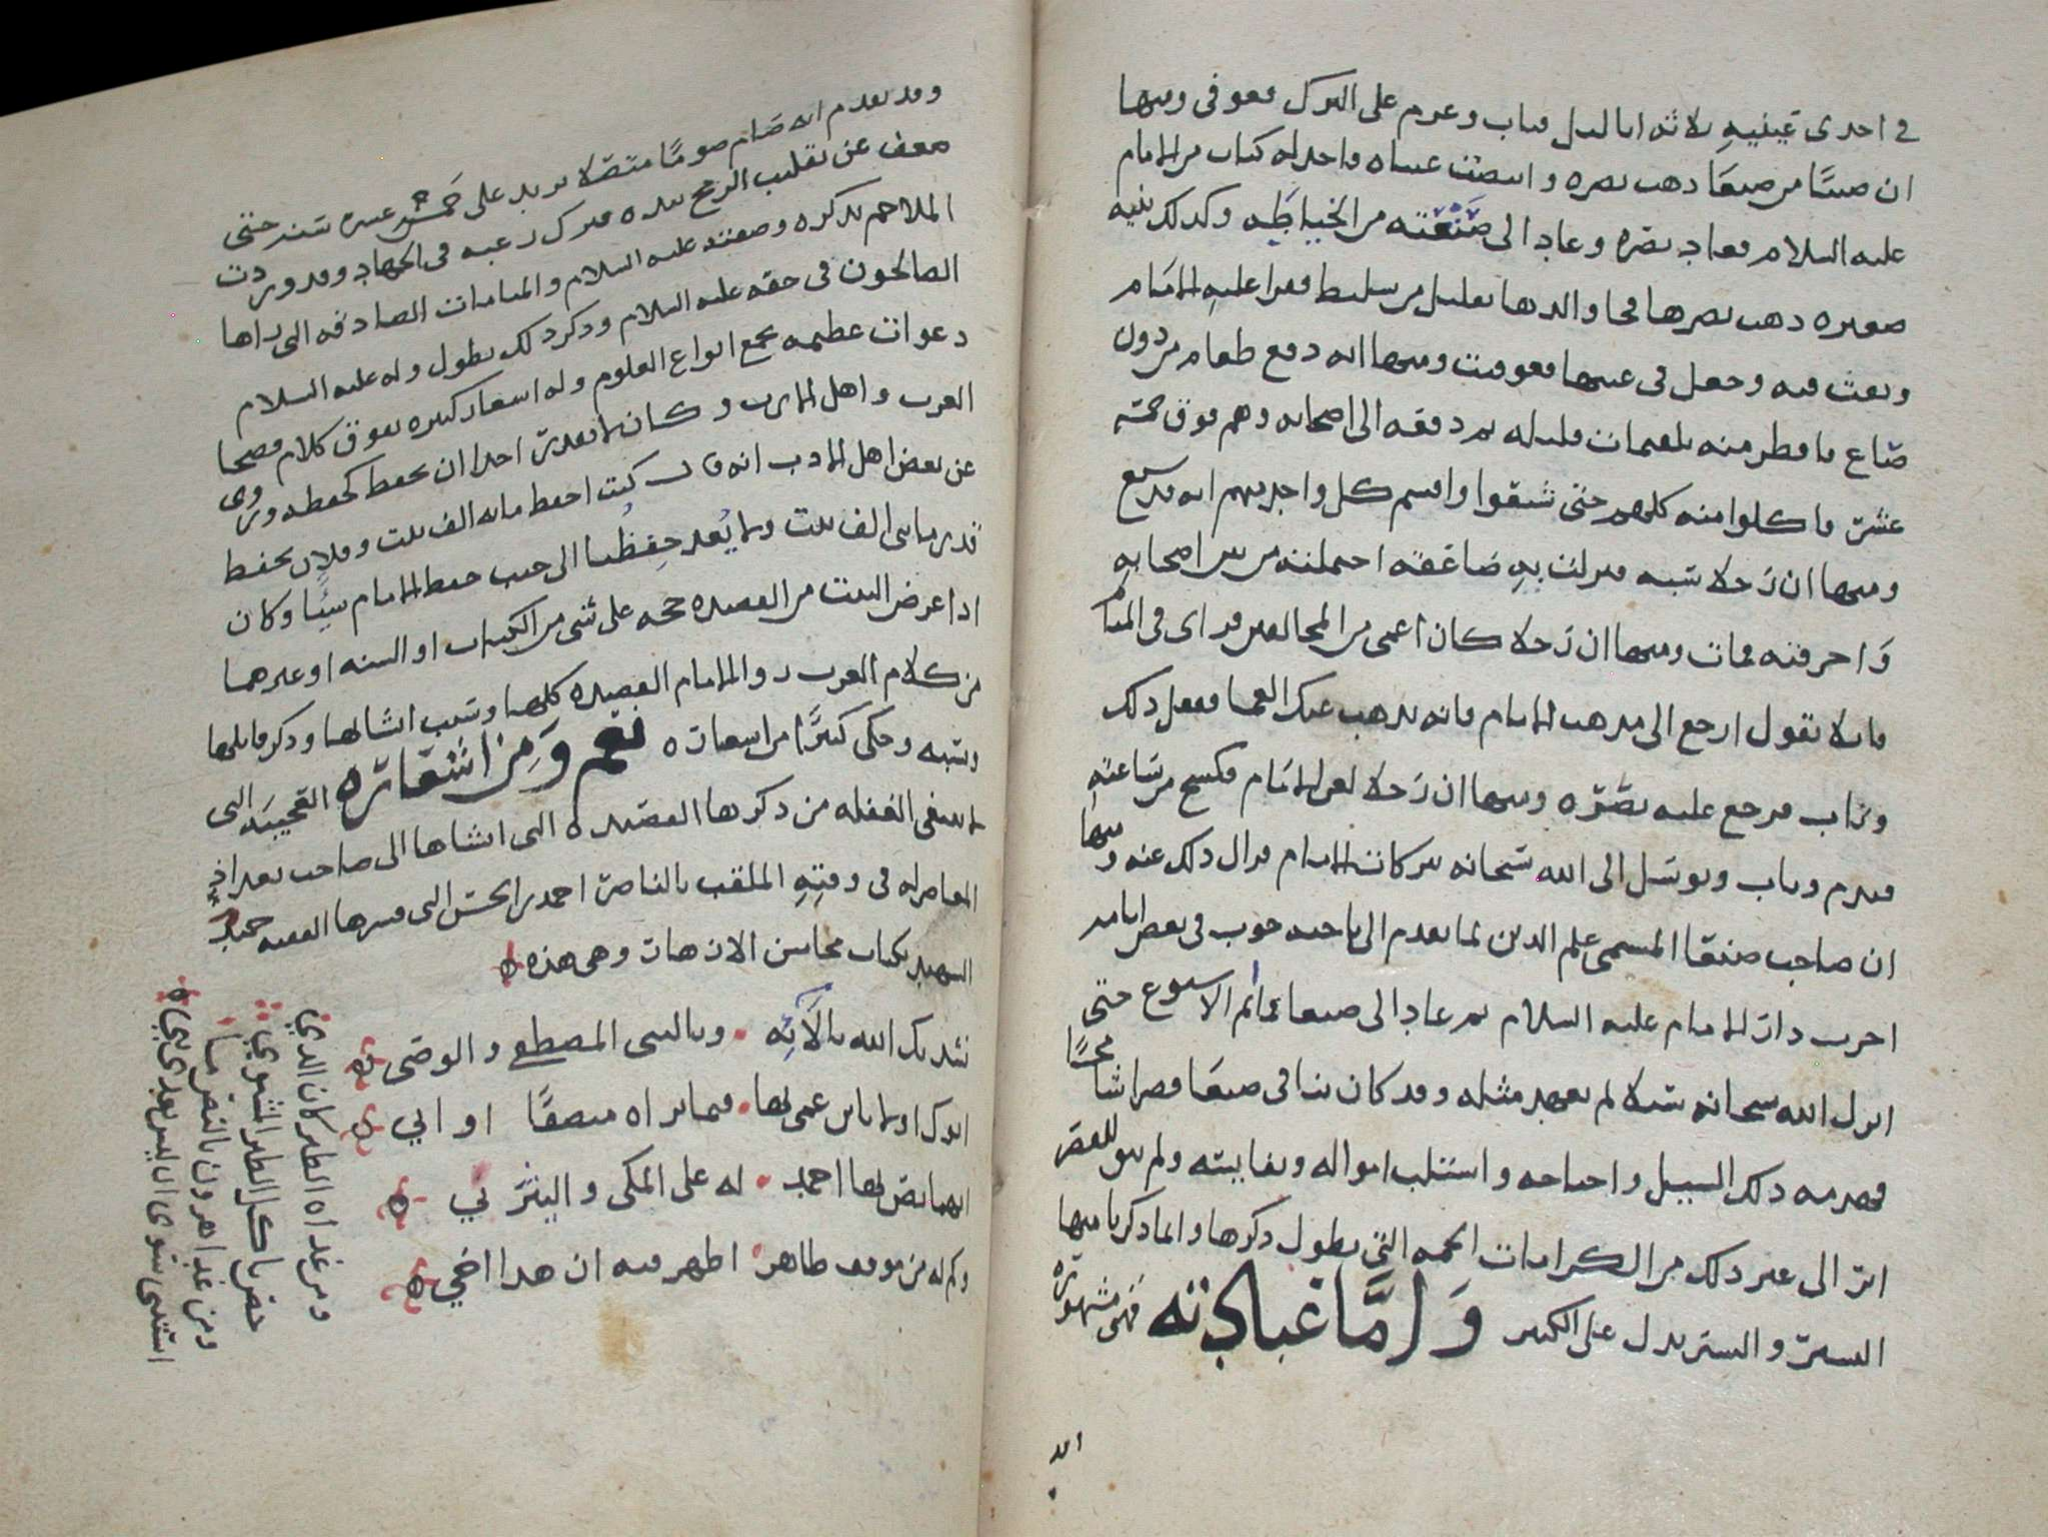 في احدى عينيه ثلاثه ايام لىل وىاب وعزم على الترك فعوفي ومنها
ان صبيًّا من صنعا ذهب بصره وابيضت عيناه واخذ له كتاب من الامام
عليه السلام فعاد بصره وعاد الى صنعته من الخياطه وكذلك بنيه
صغيره ذهب بصرها فجا والدها بقليل من سليط فقرا عليه الامام
ونفث فيه وجعل في عينيها فعوفيت ومنها انه دفع طعام من دون
صاع ما فطر منه بلقيمات قليله ثم دفعه الى اصحابه وهم فوق خمسة
عشر فاكلوا منه كلهم حتى شبعوا واقسم كل واحد منهم انه قد شبع
ومنها ان رجلا سبه فنزلت به صاعقه احتملته من بين اصحابه
واحرقته فمات ومنها ان رجلا كان اعمى من المخالفين فراى في المنام
قائلا يقول ارجع الى مذهب الامام فانه يذهب عنك العما ففعل ذلك
وتاب فرجع عليه بصره ومنها ان رجلا لعن الامام فكسح من ساعته
فندم وتاب وتوسل الى الله سبحانه ببركات الامام فزال ذلك عنه ومنها
ان صاحب صنعا المسمى علم الدين لما تقدم الى ناحيه حوث في بعض ايامه
اخرب دار الامام عليه السلام ثم عاد الى صنعا فما تم الاسبوع حتى
انزل الله سبحانه سيلا لم يعهد مثله وقد كان بنا في صنعا قصرا شامخًا
فهدمه ذلك السيل واجتاحه واستلب امواله ونفايسه ولم يبق للقصر
اثر الى غير ذلك من الكرامات الجمه التي يطول ذكرها وانما ذكرنا منها
اليسير واليسير يدل على الكثير وَامَّا عبادته فهي مشهوره
وقد تقدم انه صام صومًا متصلا يزيد على خمس عشره سنه حتى
ضعف عن تقليب الرمح بيده فترك رغبه في الجهاد وقد وردت
الملاحم بذكره وصفته عليه السلام والمنامات الصادقه التي يراها
الصالحون في حقه عليه السلام وذكر ذلك يطول وله عليه السلام
دعوات عظيمه تجمع انواع العلوم وله اشعار كثيره تفوق كلام فصحا
العرب واهل الادب وكان لا يقدر احد ان يحفظ كحفظه وروي
عن بعض اهل الادب انه قال كنت احفظ مائه الف بيت وفلان يحفظ
قدر مايتي الف بيت ولا يُعد حِفِظُنا الى جنب حفظ الامام شيئًا وكان
اذا عرض البيت من القصيده حجه على شي من الكتاب او السنه او غيرهما
من كلام العرب روا الامام القصيده كلها وسبب انشائها وذكر قائلها
ونسبه وحكى كثيرًا من اشعاره نعم وَمِن اشعاره العجيبه التي
لا ينبغي الغفله من ذكرها القصيده التي انشاها الى صاحب بغداد
المعاصر له في وقته الملقب بالناصر احمد بن الحسن التي فسرها الفقيه حميد
الشهيد بكتاب محاسن الازهار وهي هذه
نشدتك الله بالآئه وبالنبي المصطفى والوصي
الهما نص بها احمد له على المكي واليثربي
وكم له من موقف طاهر اظهر فيه ان هذا اخي
ومن غداه الطير كان الذي
حضر ياكل الطير الشوي